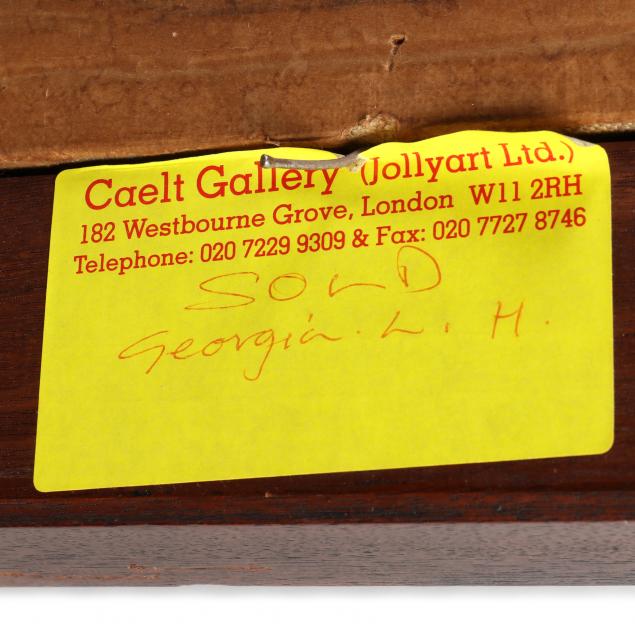 Caelt Gallery (Jollyart Ltd.)
182 Westbourne Grove, London W11 2RH
Telephone: 020 7229 9309 & Fax: 020 7727 8746
SOLD
Georgia. L. H.